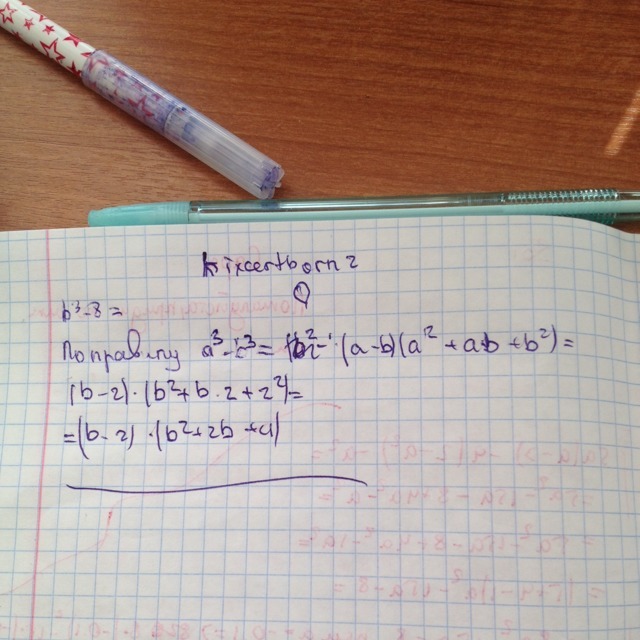 kixcertborn2
b³-8=
По правилу a³-b³= (a-b)(a²+ab+b²)=
(b-2)·(b²+b·2+2²)=
=(b-2)·(b²+2b+4)